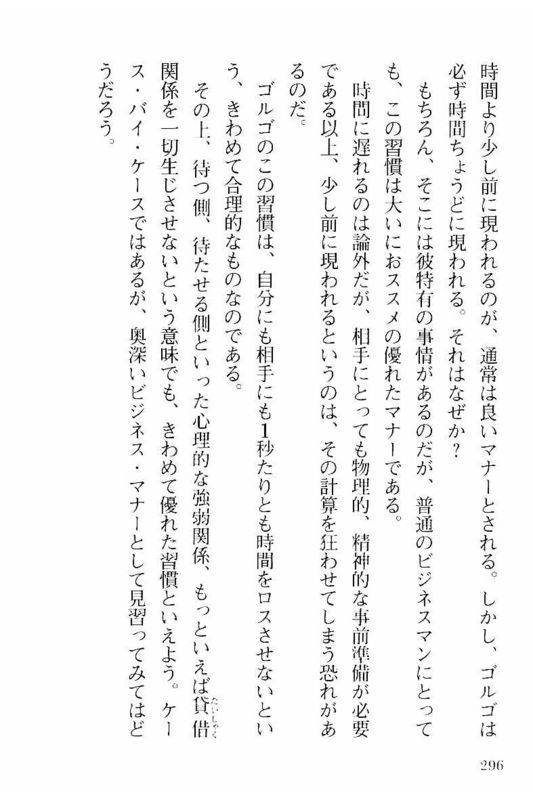 時間より少し前に現われるのが、通常は良いマナーとされる。しかし、ゴルゴは
必ず時間ちょうどに現われる。それはなぜか？
もちろん、そこには彼特有の事情があるのだが、普通のビジネスマンにとって
も、この習慣は大いにおススメの優れたマナーである。
時間に遅れるのは論外だが、相手にとっても物理的、精神的な事前準備が必要
である以上、少し前に現われるというのは、その計算を狂わせてしまう恐れがあ
るのだ。
ゴルゴのこの習慣は、自分にも相手にも1秒たりとも時間をロスさせないとい
う、きわめて合理的なものなのである。
その上、待つ側、待たせる側といった心理的な強弱関係、もっといえば貸借
たいしゃく
関係を一切生じさせないという意味でも、きわめて優れた習慣といえよう。ケー
ス・バイ・ケースではあるが、奥深いビジネス・マナーとして見習ってみてはど
うだろう。
296